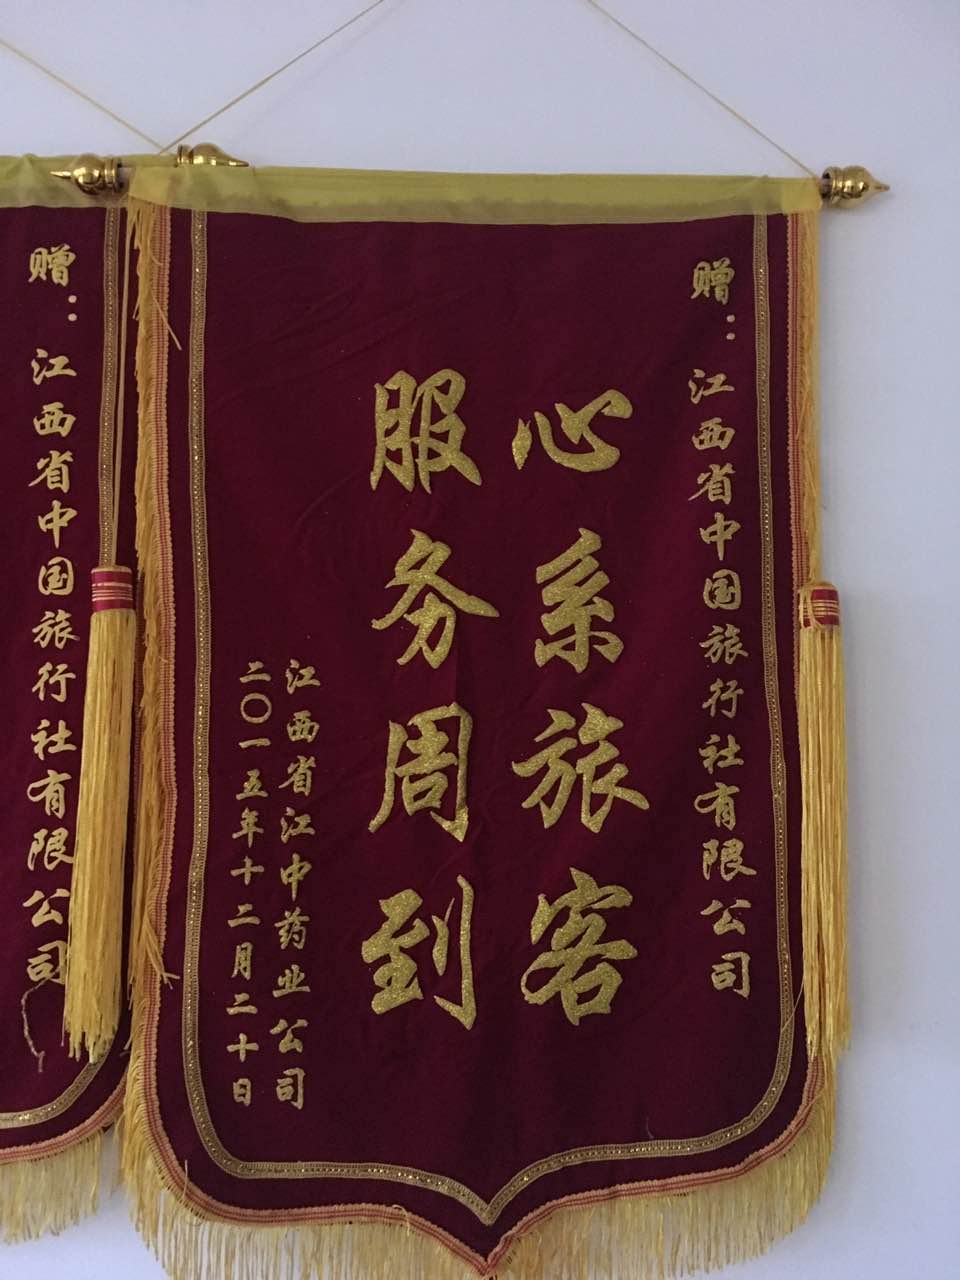 赠：江西省中国旅行社有限公司
心系旅客
服务周到
江西省江中药业公司
二〇一五年十二月二十日
赠：江西省中国旅行社有限公司